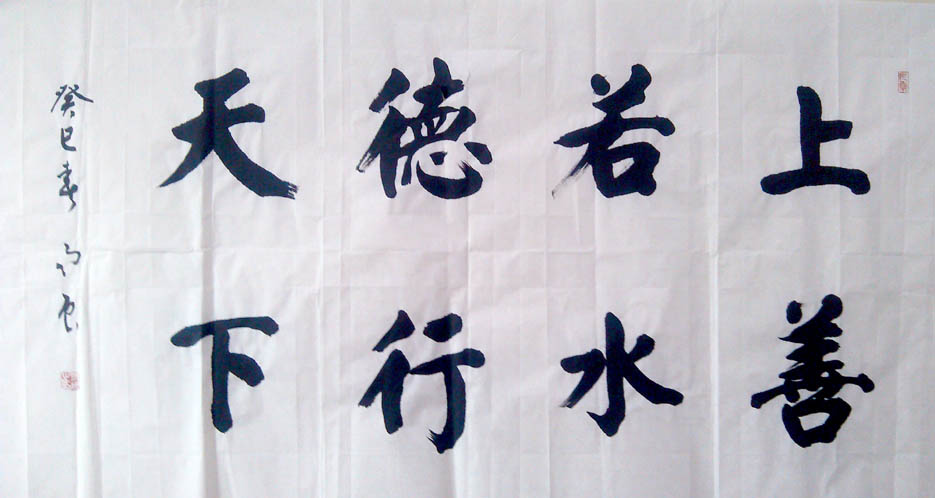 上善
若水
德行
天下
癸巳春